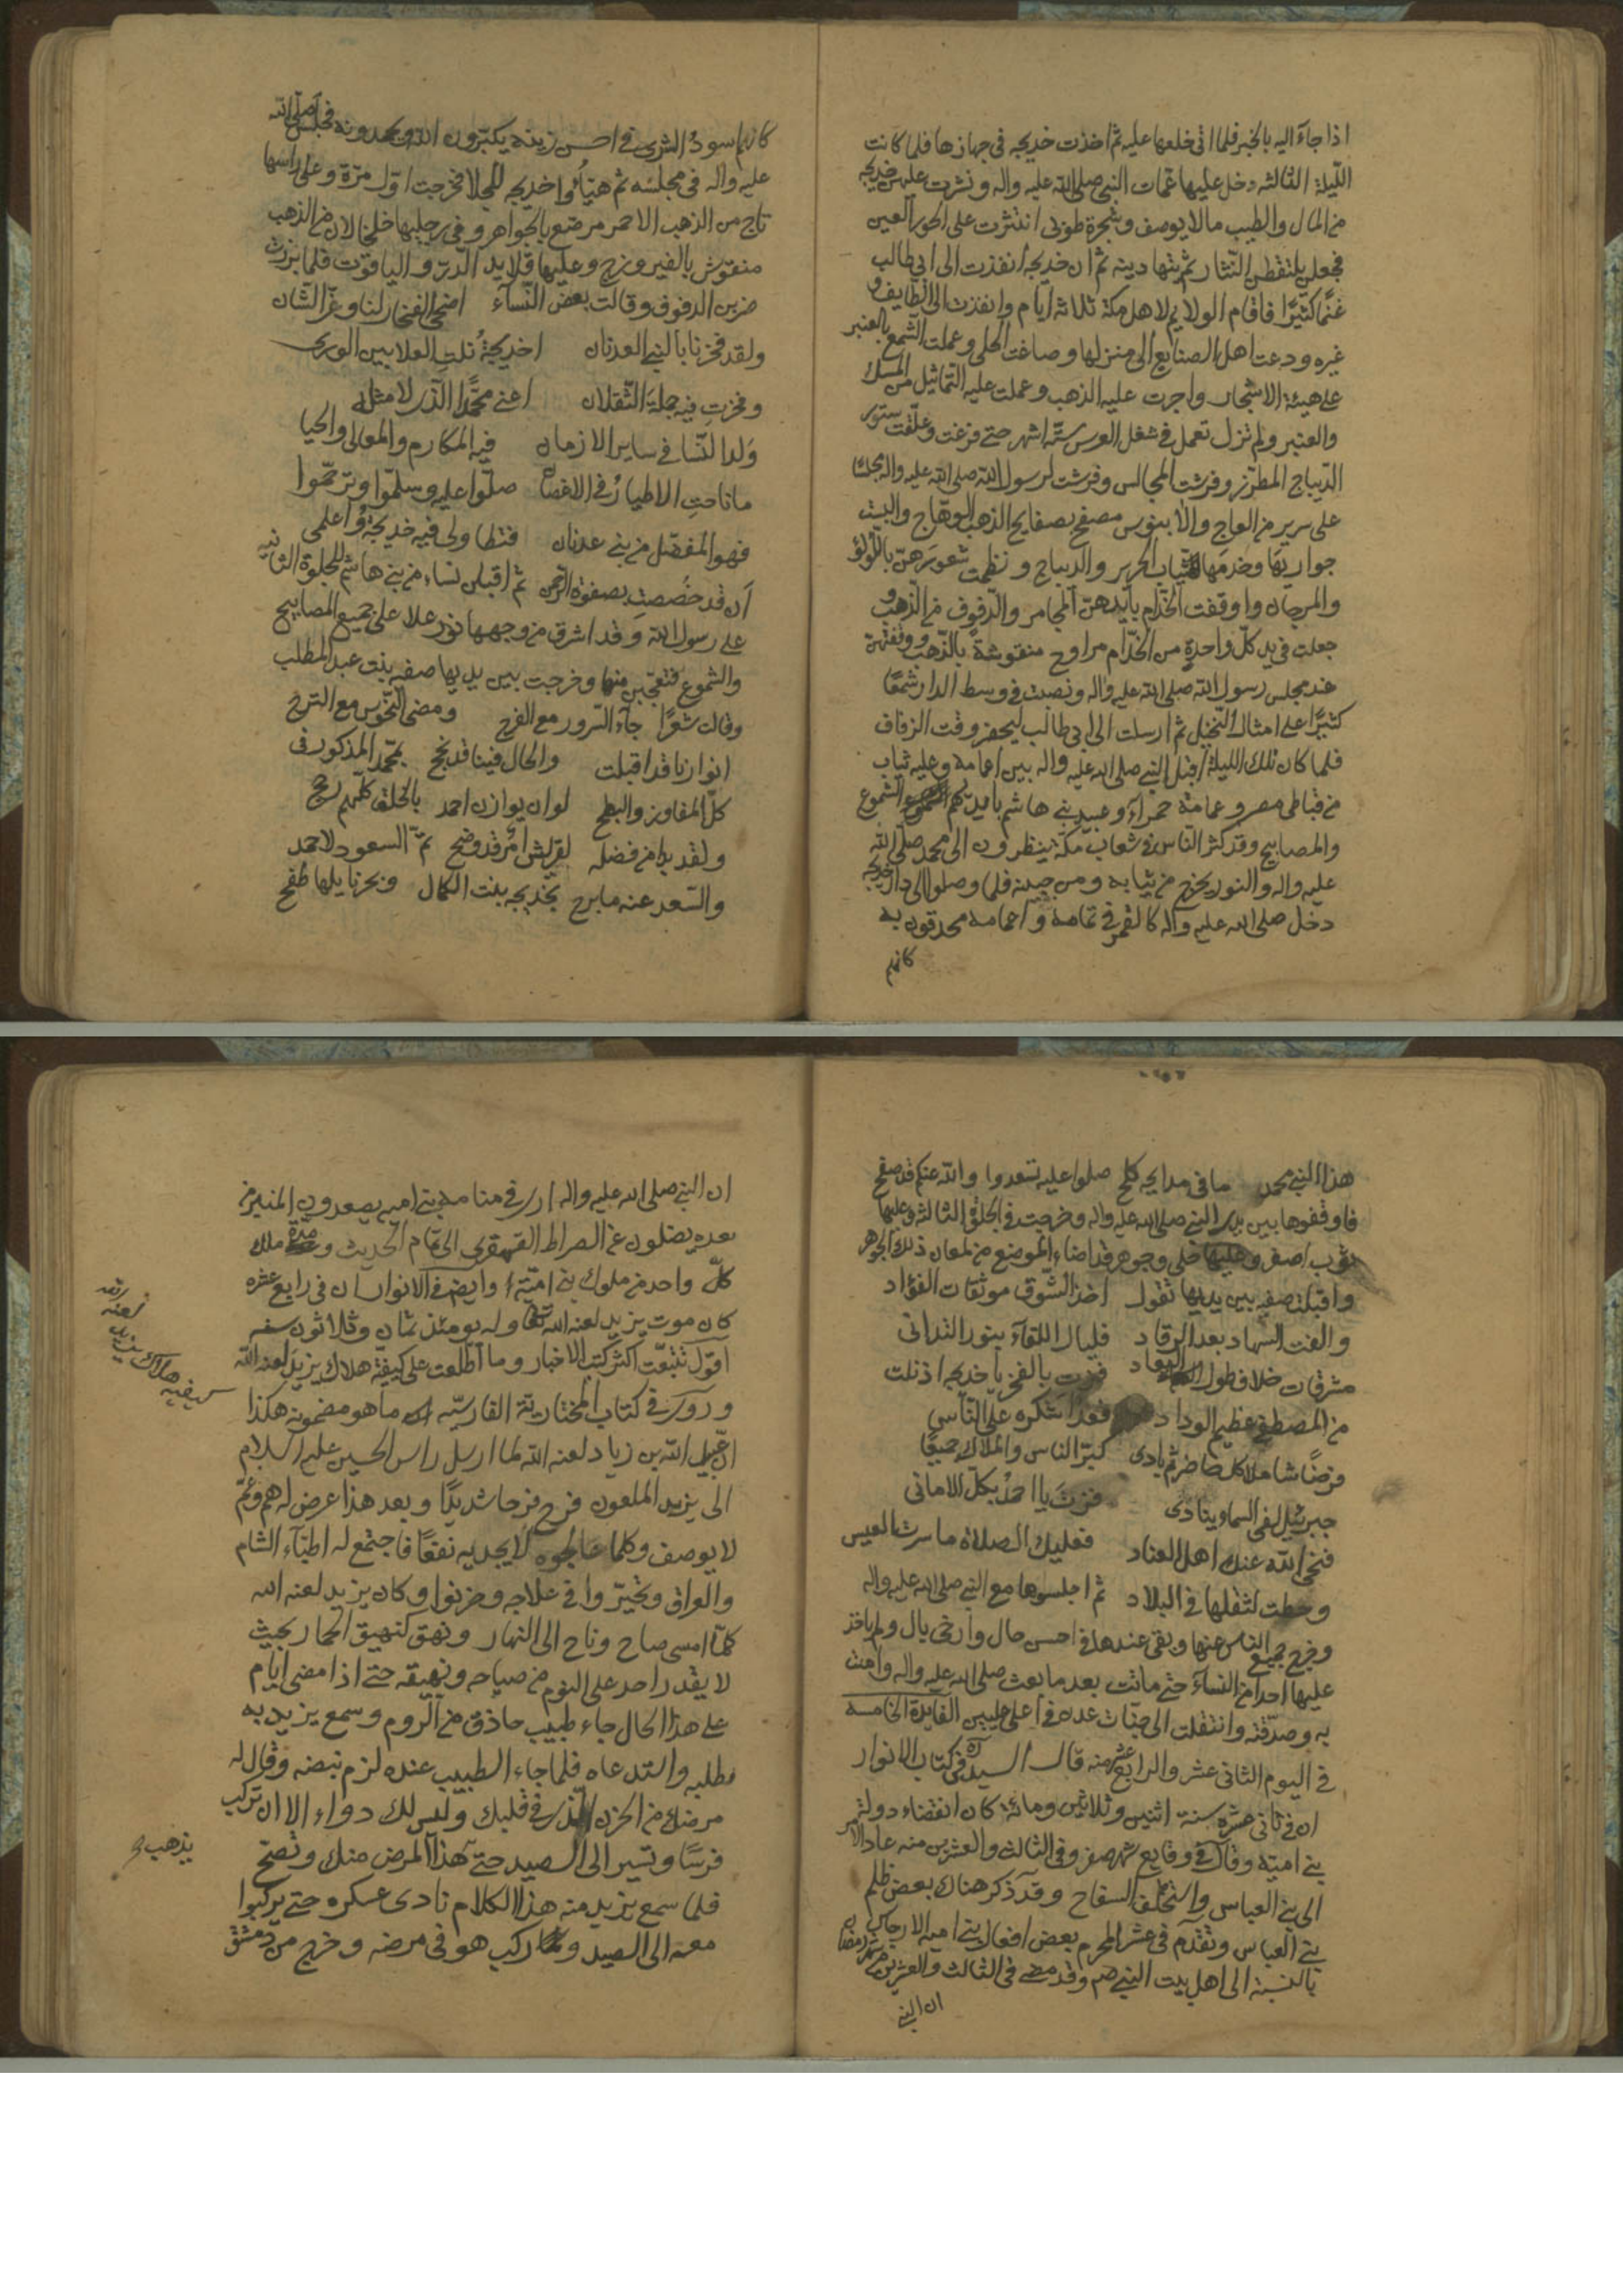 اذا جآء اليه بالخبر فلما اتى خلعها عليه ثم اخذت خديجه فى جهازها فلما كانت
الليلة الثالثه دخل عليها عمات النبى صلى الله عليه واله ونثرت عليهن خديجه
من المال والطيب مالا يوصف وشجرة طوبى انتثرت على الحور العين
فجعلن يلتقطن النثار ثم يتهادينه ثم ان خديجه انفذت الى ابى طالب
غنمًا كثيرًا فاقام الولايم لاهل مكة ثلاثة ايام وانفذت الى الطايف و
غيره ودعت اهل الصنايع الى منزلها وصاغت الحلى وعملت الشمع بالعنبر
على هيئة الاشجار واجرت عليه الذهب وعملت عليه التماثيل من المسك
والعنبر ولم تزل تعمل فى شغل العرس ستة اشهر حتى فرغت وعلقت ستور
الديباج المطرز وفرشت المجالس وفرشت لرسول الله صلى الله عليه واله مجلسًا
على سرير من العاج والابنوس مصفح بصفايح الذهب الوهاج والبست
جواريها وخدمها ثياب الحرير والديباج ونظمت شعورهن باللؤلؤ
والمرجان واوقفت الخدام بايديهن المجامر والدفوف من الذهب و
جعلت فى يد كل واحدة من الخدام مراوح منقوشة بالذهب ووقفتهن
عند مجلس رسول الله صلى الله عليه واله ونصبت فى وسط الدار شمعًا
كثيرًا على امثال النخيل ثم ارسلت الى ابى طالب ليحضر وقت الزفاف
فلما كان تلك الليلة اقبل النبى صلى الله عليه واله بين اعمامه وعليه ثياب
من قباطى مصر وعمامة حمرآء وعبيد بنى هاشم بايديهم الشموع
والمصابيح وقد كثر الناس فى شعاب مكة ينظرون الى محمد صلى الله
عليه واله والنور يخرج من ثيابه ومن جبينه فلما وصلوا الى دار خديجه
دخل صلى الله عليه واله كالقمر فى تمامه واعمامه محدقون به
كانهم
كانهم اسود الشرى فى احسن زينة يكبرون الله ويحمدونه فجلس صلى الله
عليه واله فى مجلسه ثم هيّأوا خديجه للجلا فخرجت اول مرة وعلى راسها
تاج من الذهب الاحمر مرصع بالجواهر وفى رجليها خلخالان من الذهب
منقوش بالفيروزج وعليها قلايد الدر والياقوت فلما برزت
ضربن الدفوف وقالت بعض النسآء اضحى الفخار لنا وعز الشان
ولقد فخرنا بالنبى العدنان اخديجة نلت العلا بين الورى
وفخرت فيه جملة الثقلان اعنى محمدًا الذى لا مثله
ولد النسا فى ساير الازمان فيه المكارم والمعالى والحيا
ما ناحت الاطيار فى الاغصان صلوا عليه وسلموا وترحموا
فهو المفضل من بنى عدنان فتطاولى فيه خديجة واعلمى
ان قد خصصت بصفوة الرحمن ثم اقبلن نساء من بنى هاشم للجلوة الثانيه
على رسول الله وقد اشرق من وجهها نور علا على جميع المصابيح
والشموع فتعجبن منها وخرجت بين يديها صفيه بنت عبد المطلب
وقالت شعرًا جآء السرور مع الفرح ومضى النحوس مع الترح
انوارنا قد اقبلت والحال فينا قد نجح بمحمد المذكور فى
كل المفاوز والبطح لو ان يوازن احمد بالخلق كلهم رجح
ولقد بدا من فضله لقريش امر قد وضح ثم السعود لاحمد
والسعد عنه ما برح بخديجه بنت الكمال وبحر نايلها طفح
هذا النبى محمد ما فى مدايحه كلح صلوا عليه تسعدوا والله عنكم قد صفح
فاوقفوها بين يدى النبى صلى الله عليه واله وخرجت فى الجلوة الثالثه وعليها
ثوب اصفر وعليها حلى وجوهر قد اضاء الموضع من لمعان ذلك الجوهر
واقبلت صفيه بين يديها تقول اخذ الشوق موثقات الفؤاد
والفت السهاد بعد الرقاد فليال اللقآء بنور التدانى
مشرقات خلاف طول البعاد فزت بالفخر يا خديجه اذ نلت
من المصطفى عظيم الوداد فغدا شكره على الناس
فرضًا شاملا كل حاضر ثم بادى كبّر الناس والملاك جميعًا
جبرئيل لفى السما وينادى فزت يا احمد بكل الامانى
فنحى الله عنك اهل العناد فعليك الصلاة ما سرت العيس
وحطت لثقلها فى البلاد ثم اجلسوها مع النبى صلى الله عليه واله
وخرج جميع الناس عنها وبقى عندها فى احسن حال وارخى بال ولم ياخذ
عليها احدا من النسآء حتى ماتت بعد ما بعث صلى الله عليه واله وامنت
به وصدقته وانتقلت الى جنات عدن فى اعلى عليين الفايدة الخامسه
فى اليوم الثانى عشر والرابع عشر منه قال السيد ره فى كتاب الانوار
ان فى ثانى عشره سنة اثنين وثلاثين ومائة كان انقضاء دولة
بنى امية وقال فى وقايع شهر صفر وفى الثالث والعشرين منه عاد الامر
الى بنى العباس واستخلف السفاح وقد ذكر هناك بعض ظلم
بنى العباس وتقدم فى عشر المحرم بعض افعال بنى اميه الارجاس
بالنسبة الى اهل بيت النبى صم وقد مضى فى الثالث والعشرين من شهر رمضان
ان النبى
ان النبى صلى الله عليه واله ارى فى منامه بنى اميه يصعدون المنبر من
بعده يضلون عن الصراط القهقرى الى تمام الحديث ومدة ملك
كل واحد من ملوك بنى امية وايضا فى الانوار ان فى رابع عشره
كان موت يزيد لعنه الله تعالى وله يومئذ ثمان وثلاثون سنه
اقول تتبعت اكثر كتب الاخبار وما اطلعت على كيفية هلاك يزيد لعنه الله
وروى فى كتاب المختارية الفارسيه ما هو مضمونه هكذا
ان عبيد الله بن زياد لعنه الله لما ارسل راس الحسين عليه السلام
الى يزيد الملعون فرح فرحا شديدًا وبعد هذا عرض له هم وغم
لا يوصف وكلما عالجوه لا يجد به نفعًا فاجتمع له اطباء الشام
والعراق وتحيّروا فى علاجه وحزنوا وكان يزيد لعنه الله
كلما امسى صاح وناح الى النهار ونهق كنهيق الحمار بحيث
لا يقدر احد على النوم من صياحه ونهيقه حتى اذا مضى ايام
على هذا الحال جاء طبيب حاذق من الروم وسمع يزيد به
فطلبه واستدعاه فلما جاء الطبيب عنده لزم نبضه وقال له
مرضك من الحزن الذى فى قلبك وليس لك دواء الا ان تركب
فرسًا وتسير الى الصيد حتى هذا المرض منك وتصح
فلما سمع يزيد منه هذا الكلام نادى عسكره حتى يركبوا
معه الى الصيد وركب هو فى مرضه وخرج من دمشق
كيفيه هلاك يزيد لعنه الله
يذهب